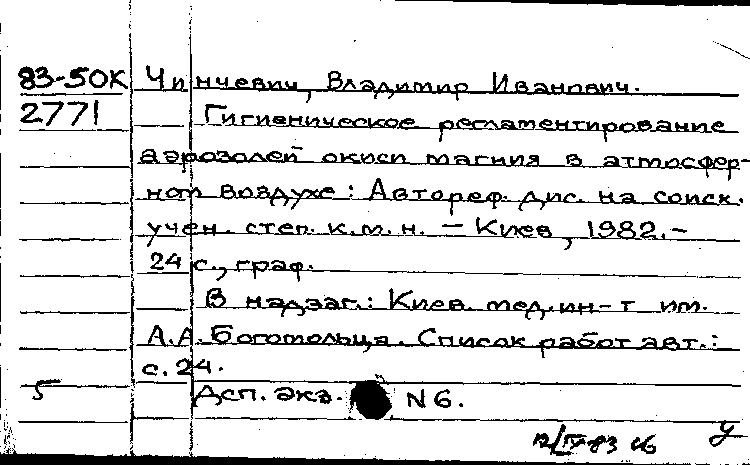 83-50К Чинчевич, Владимир Иванович.
2771 Гигиеническое регламентирование
аэрозолей окиси магния в атмосфер-
ном воздухе: Автореф. дис. на соиск.
учен. степ. к.м.н. — Киев, 1982.—
24 с., граф.
В надзаг.: Киев. мед. ин-т им.
А.А. Богомольца. Список работ авт.:
с. 24.
5 Дсп. экз. N 6.
12/IV-83